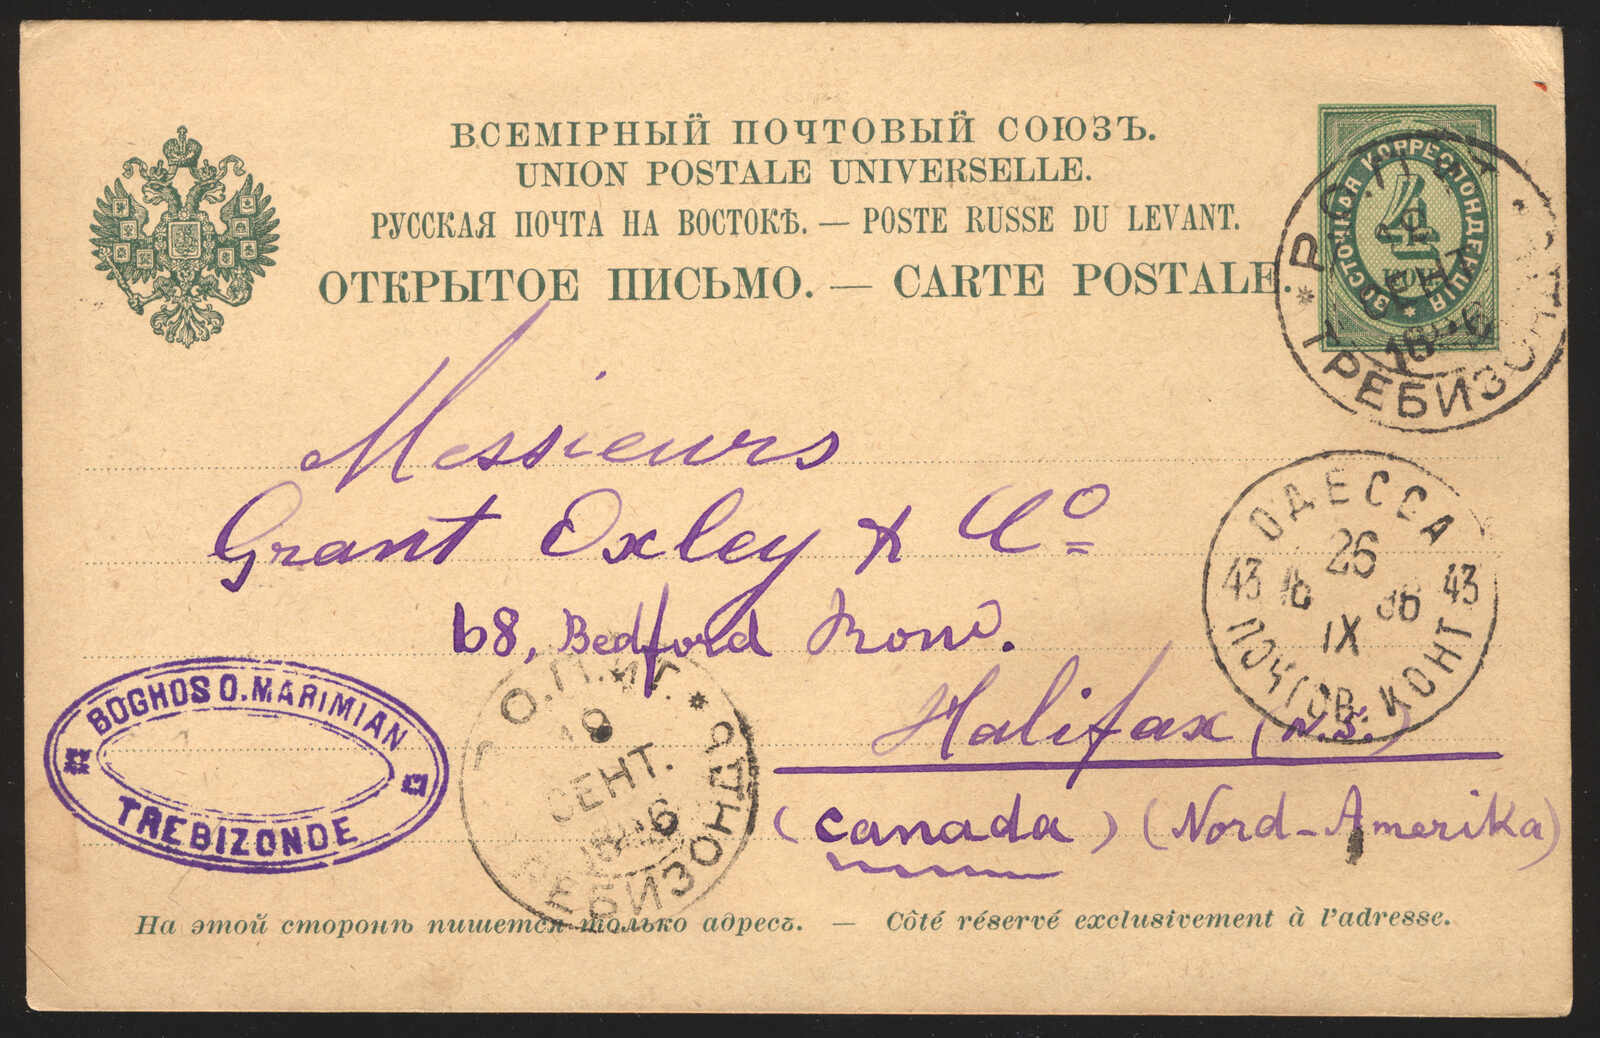 ВСЕМІРНЫЙ ПОЧТОВЫЙ СОЮЗЪ.
UNION POSTALE UNIVERSELLE.
РУССКАЯ ПОЧТА НА ВОСТОКѢ. — POSTE RUSSE DU LEVANT.
ОТКРЫТОЕ ПИСЬМО. — CARTE POSTALE.
ВОСТОЧНАЯ КОРРЕСПОНДЕНЦІЯ
4
КОП.
Р.О.П.
ТРЕБИЗО
Messieurs
Grant Oxley & Co
68, Bedford Row.
Halifax (N.S.)
(Canada) (Nord-Amerika)
ОДЕССА
26
43 IX 43
ПОЧТОВ. КОНТ
BOGHOS O. MARIMIAN
TREBIZONDE
О.П.
СЕНТ.
ТРЕБИЗОНДЪ
На этой сторонѣ пишется только адресъ. — Côté réservé exclusivement à l'adresse.